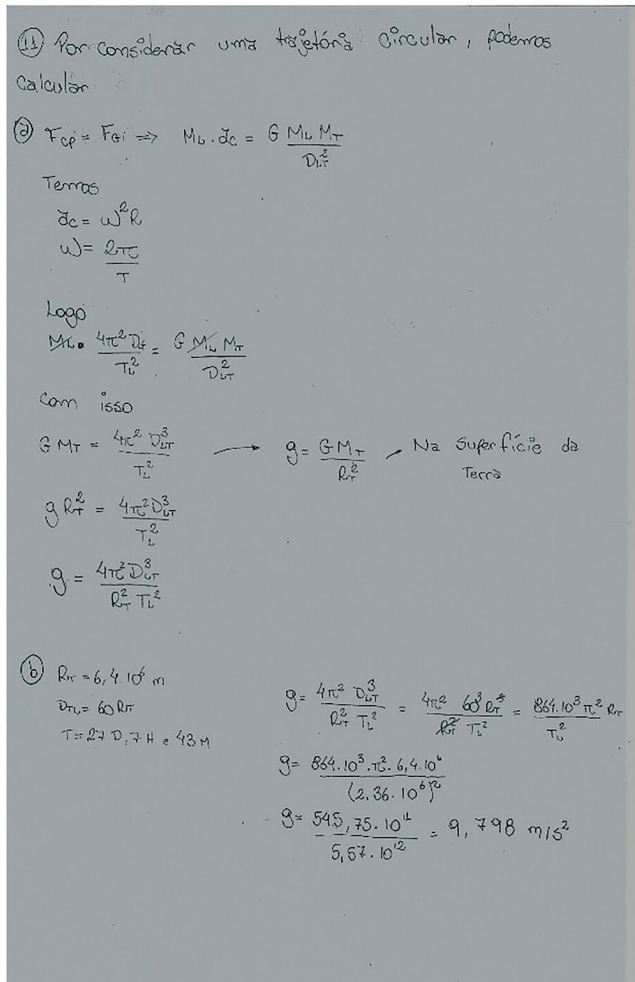 11 Por considerar uma trajetória circular, podemos
calcular
a) Fcp = FGi => ML . ac = G ML MT / DLT²
Temos
ac = ω²R
ω = 2π / T
Logo
ML . 4π² DLT / TL² = G ML MT / DLT²
Com isso
G MT = 4π² DLT³ / TL² → g = G MT / RT² Na superfície da
Terra
g RT² = 4π² DLT³ / TL²
g = 4π² DLT³ / RT² TL²
b) RT = 6,4.10⁶ m
DTL = 60 RT
T = 27 D, 7 H e 43 M
g = 4π² DLT³ / RT² TL² = 4π² 60³ RT³ / RT² TL² = 864.10³ π² RT / TL²
g = 864.10³.π².6,4.10⁶ / (2,36.10⁶)²
g = 545,75.10¹¹ / 5,57.10¹² = 9,798 m/s²